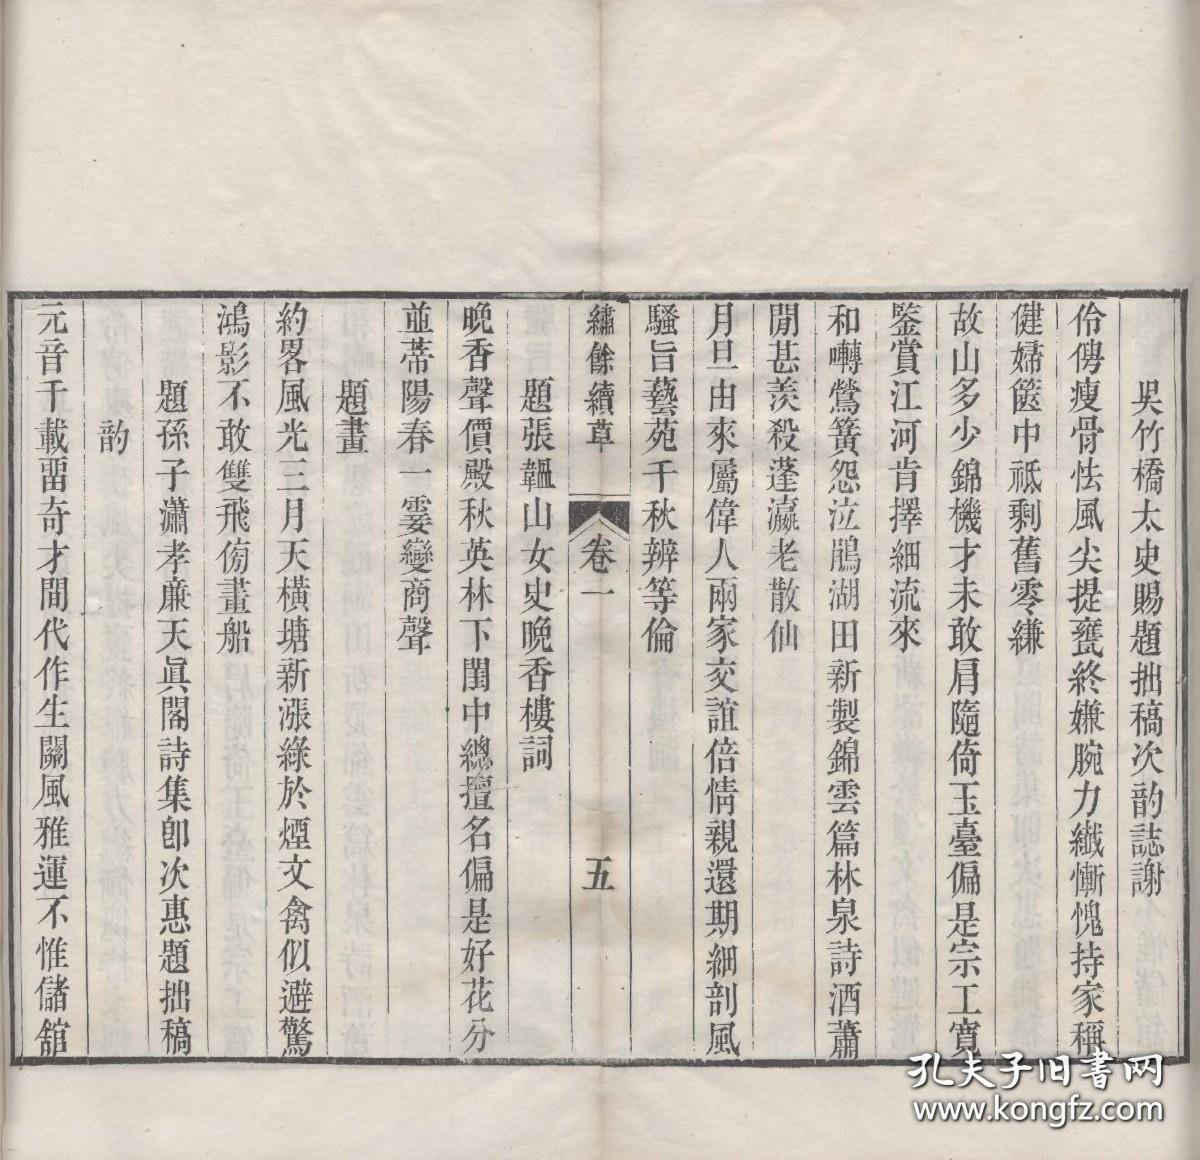 吳竹橋太史賜題拙稿次韵誌謝
伶俜瘦骨怯風尖提甕終嫌腕力纖慚愧持家稱
健婦篋中祗剩舊零縑
故山多少錦機才未敢肩隨倚玉臺偏是宗工寬
鑒賞江河肯擇細流來
和囀鶯簧怨泣鵑湖田新製錦雲篇林泉詩酒蕭
閒甚羨殺蓬瀛老散仙
月旦由來屬偉人兩家交誼倍情親還期細剖風
騷旨藝苑千秋辨等倫
繡餘續草 卷一 五
題張韞山女史晚香樓詞
晚香聲價殿秋英林下閨中總擅名偏是好花分
並蒂陽春一霎變商聲
題畫
約畧風光三月天橫塘新漲綠於煙文禽似避驚
鴻影不敢雙飛傍畫船
題孫子瀟孝廉天眞閣詩集卽次惠題拙稿
韵
元音千載畱奇才間代作生關風雅運不惟儲舘
孔夫子旧书网
www.kongfz.com